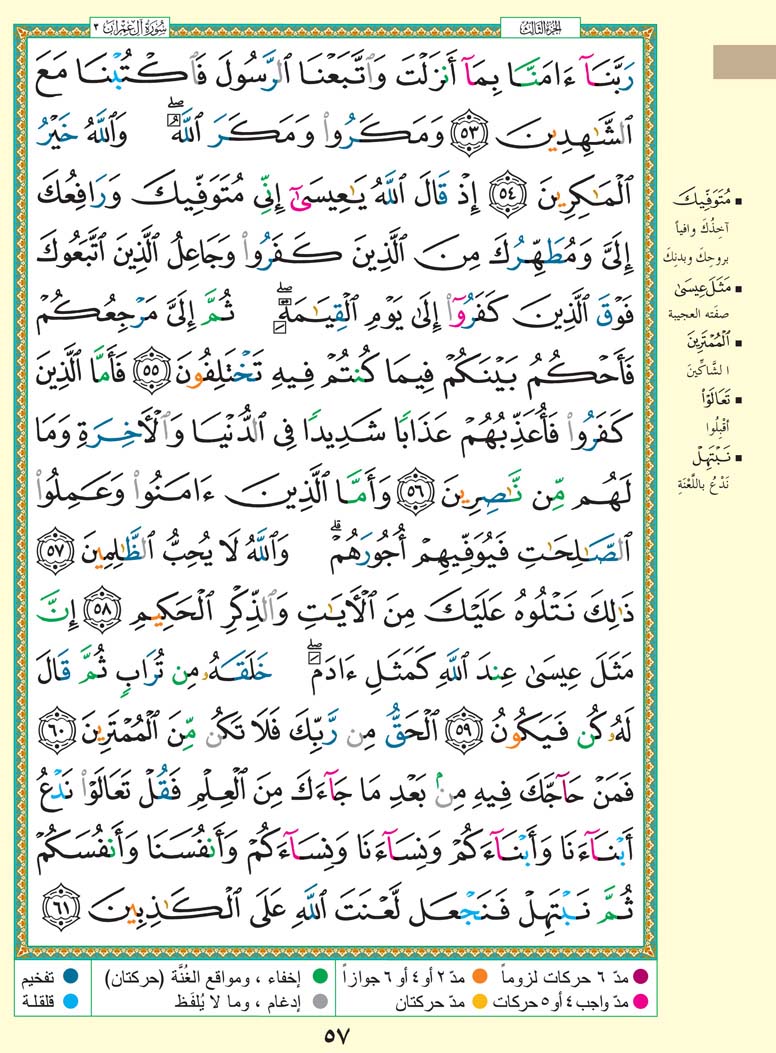 سُورَةُ آلِ عِمْرَان ٣
الجُزءُ الثَّالِثُ
رَبَّنَآ ءَامَنَّا بِمَآ أَنزَلْتَ وَٱتَّبَعْنَا ٱلرَّسُولَ فَٱكْتُبْنَا مَعَ
ٱلشَّٰهِدِينَ ٥٣ وَمَكَرُوا۟ وَمَكَرَ ٱللَّهُ ۖ وَٱللَّهُ خَيْرُ
ٱلْمَٰكِرِينَ ٥٤ إِذْ قَالَ ٱللَّهُ يَٰعِيسَىٰٓ إِنِّى مُتَوَفِّيكَ وَرَافِعُكَ
إِلَىَّ وَمُطَهِّرُكَ مِنَ ٱلَّذِينَ كَفَرُوا۟ وَجَاعِلُ ٱلَّذِينَ ٱتَّبَعُوكَ
فَوْقَ ٱلَّذِينَ كَفَرُوٓا۟ إِلَىٰ يَوْمِ ٱلْقِيَٰمَةِ ۖ ثُمَّ إِلَىَّ مَرْجِعُكُمْ
فَأَحْكُمُ بَيْنَكُمْ فِيمَا كُنتُمْ فِيهِ تَخْتَلِفُونَ ٥٥ فَأَمَّا ٱلَّذِينَ
كَفَرُوا۟ فَأُعَذِّبُهُمْ عَذَابًا شَدِيدًا فِى ٱلدُّنْيَا وَٱلْءَاخِرَةِ وَمَا
لَهُم مِّن نَّٰصِرِينَ ٥٦ وَأَمَّا ٱلَّذِينَ ءَامَنُوا۟ وَعَمِلُوا۟
ٱلصَّٰلِحَٰتِ فَيُوَفِّيهِمْ أُجُورَهُمْ ۗ وَٱللَّهُ لَا يُحِبُّ ٱلظَّٰلِمِينَ ٥٧
ذَٰلِكَ نَتْلُوهُ عَلَيْكَ مِنَ ٱلْءَايَٰتِ وَٱلذِّكْرِ ٱلْحَكِيمِ ٥٨ إِنَّ
مَثَلَ عِيسَىٰ عِندَ ٱللَّهِ كَمَثَلِ ءَادَمَ ۖ خَلَقَهُۥ مِن تُرَابٍ ثُمَّ قَالَ
لَهُۥ كُن فَيَكُونُ ٥٩ ٱلْحَقُّ مِن رَّبِّكَ فَلَا تَكُن مِّنَ ٱلْمُمْتَرِينَ ٦٠
فَمَنْ حَآجَّكَ فِيهِ مِنۢ بَعْدِ مَا جَآءَكَ مِنَ ٱلْعِلْمِ فَقُلْ تَعَالَوْا۟ نَدْعُ
أَبْنَآءَنَا وَأَبْنَآءَكُمْ وَنِسَآءَنَا وَنِسَآءَكُمْ وَأَنفُسَنَا وَأَنفُسَكُمْ
ثُمَّ نَبْتَهِلْ فَنَجْعَل لَّعْنَتَ ٱللَّهِ عَلَى ٱلْكَٰذِبِينَ ٦١
▪ مُتَوَفِّيكَ
آخِذُكَ وافياً
بروحِكَ وبدنِكَ
▪ مَثَلَ عِيسَىٰ
صفَته العجيبة
▪ ٱلْمُمْتَرِينَ
الشَّاكِّينَ
▪ تَعَالَوْا۟
أقْبِلُوا
▪ نَبْتَهِلْ
نَدْعُ باللَّعْنَةِ
مدّ ٦ حركات لزوماً
مدّ ٢ أو ٤ أو ٦ جوازاً
إخفاء ، ومواقع الغُنَّة (حركتان)
تفخيم
مدّ واجب ٤ أو ٥ حركات
مدّ حركتان
إدغام ، وما لا يُلفَظ
قلقلة
٥٧